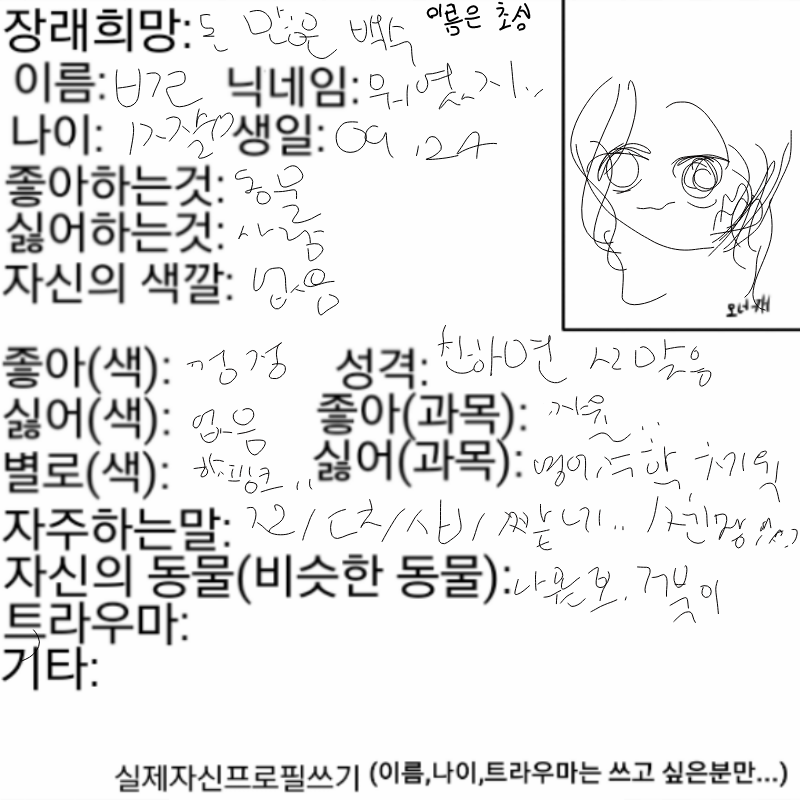 장래희망: 돈 많은 백수 이름은 초성
이름: ㅂㄱㄹ 닉네임: 뭐였지..
나이: 생일: 09.24
좋아하는것: 동물
싫어하는것: 사람
자신의 색깔: 없음
좋아(색): 검정 성격: 친하면 시끄
싫어(색): 없음 좋아(과목):
별로(색): 핫핑크.. 싫어(과목): 영어, 수학
자주하는말:
자신의 동물(비슷한 동물): 거북이
트라우마:
기타:
오너캐
실제자신프로필쓰기 (이름,나이,트라우마는 쓰고 싶은분만...)